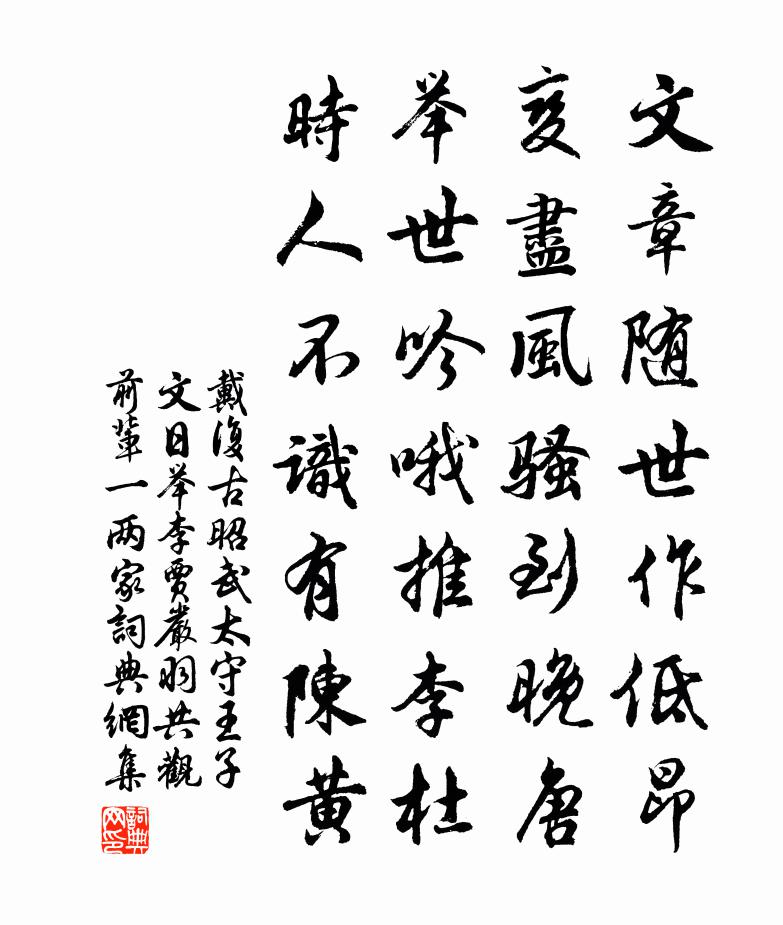 文章随世作低昂
变盡風騷到晚唐
举世吟哦推李杜
時人不識有陳黄
戴復古昭武太守王子
文日举李賈嚴羽共觀
前輩一两家詞典網集
詞典网印